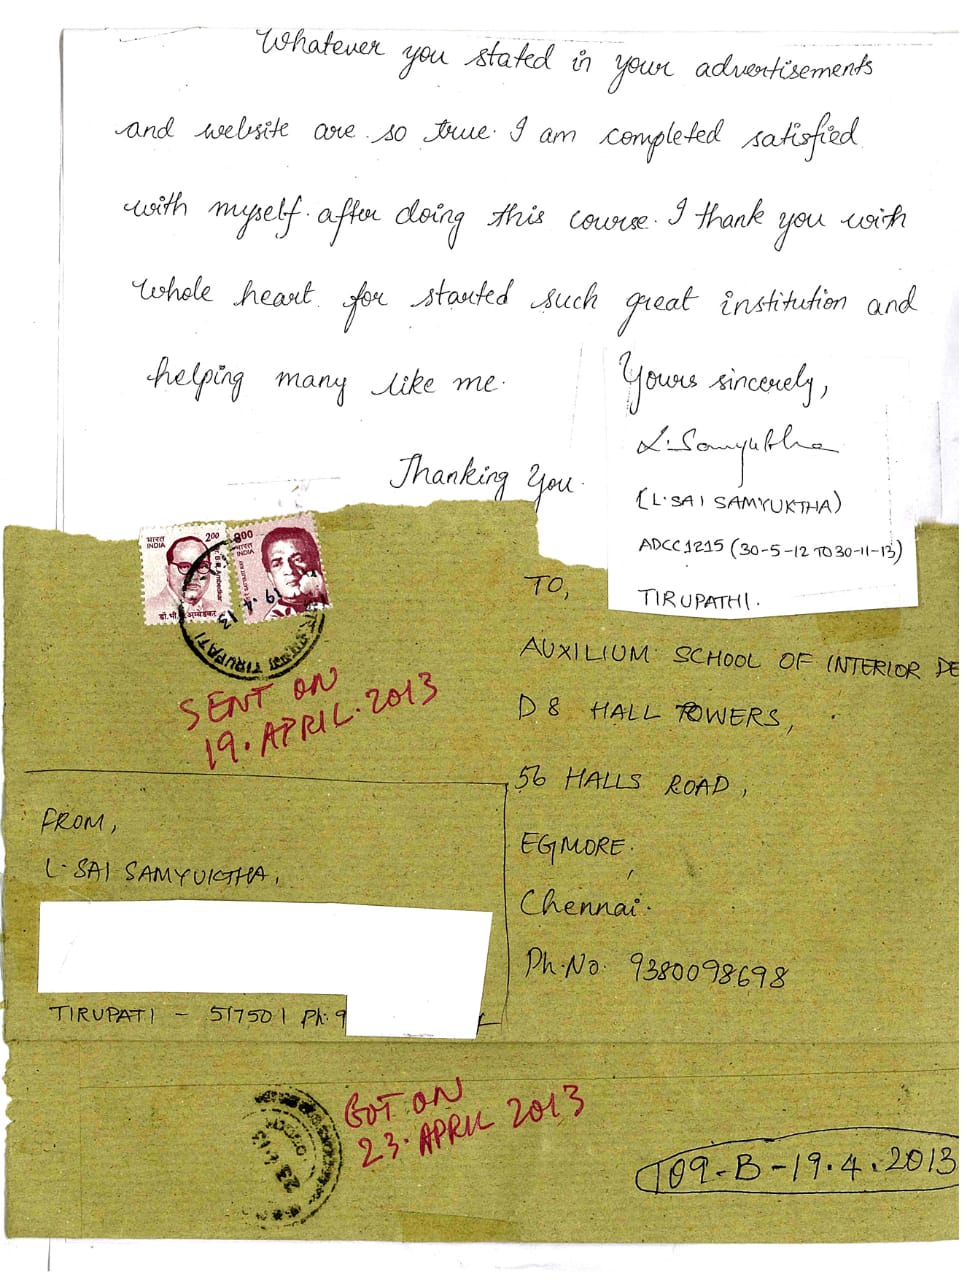 Whatever you stated in your advertisements
and website are so true. I am completed satisfied
with myself after doing this course. I thank you with
whole heart for started such great institution and
helping many like me.
Yours sincerely,
L. Samyuktha
Thanking You.
(L. SAI SAMYUKTHA)
ADCC1215 (30-5-12 TO 30-11-13)
TIRUPATHI.
भारत
INDIA
200
डॉ. भी. रा. अम्बेडकर
B.R. Ambedkar
भारत
INDIA
300
19.4.13
TIRUPATI
SENT ON
19. APRIL. 2013
TO,
AUXILIUM SCHOOL OF INTERIOR DE
D8 HALL TOWERS,
56 HALLS ROAD,
EGMORE.
Chennai.
Ph. No. 9380098698
FROM,
L. SAI SAMYUKTHA,
TIRUPATI - 517501 Ph. 9
GOT ON
23. APRIL 2013
23
109-B-19.4.2013